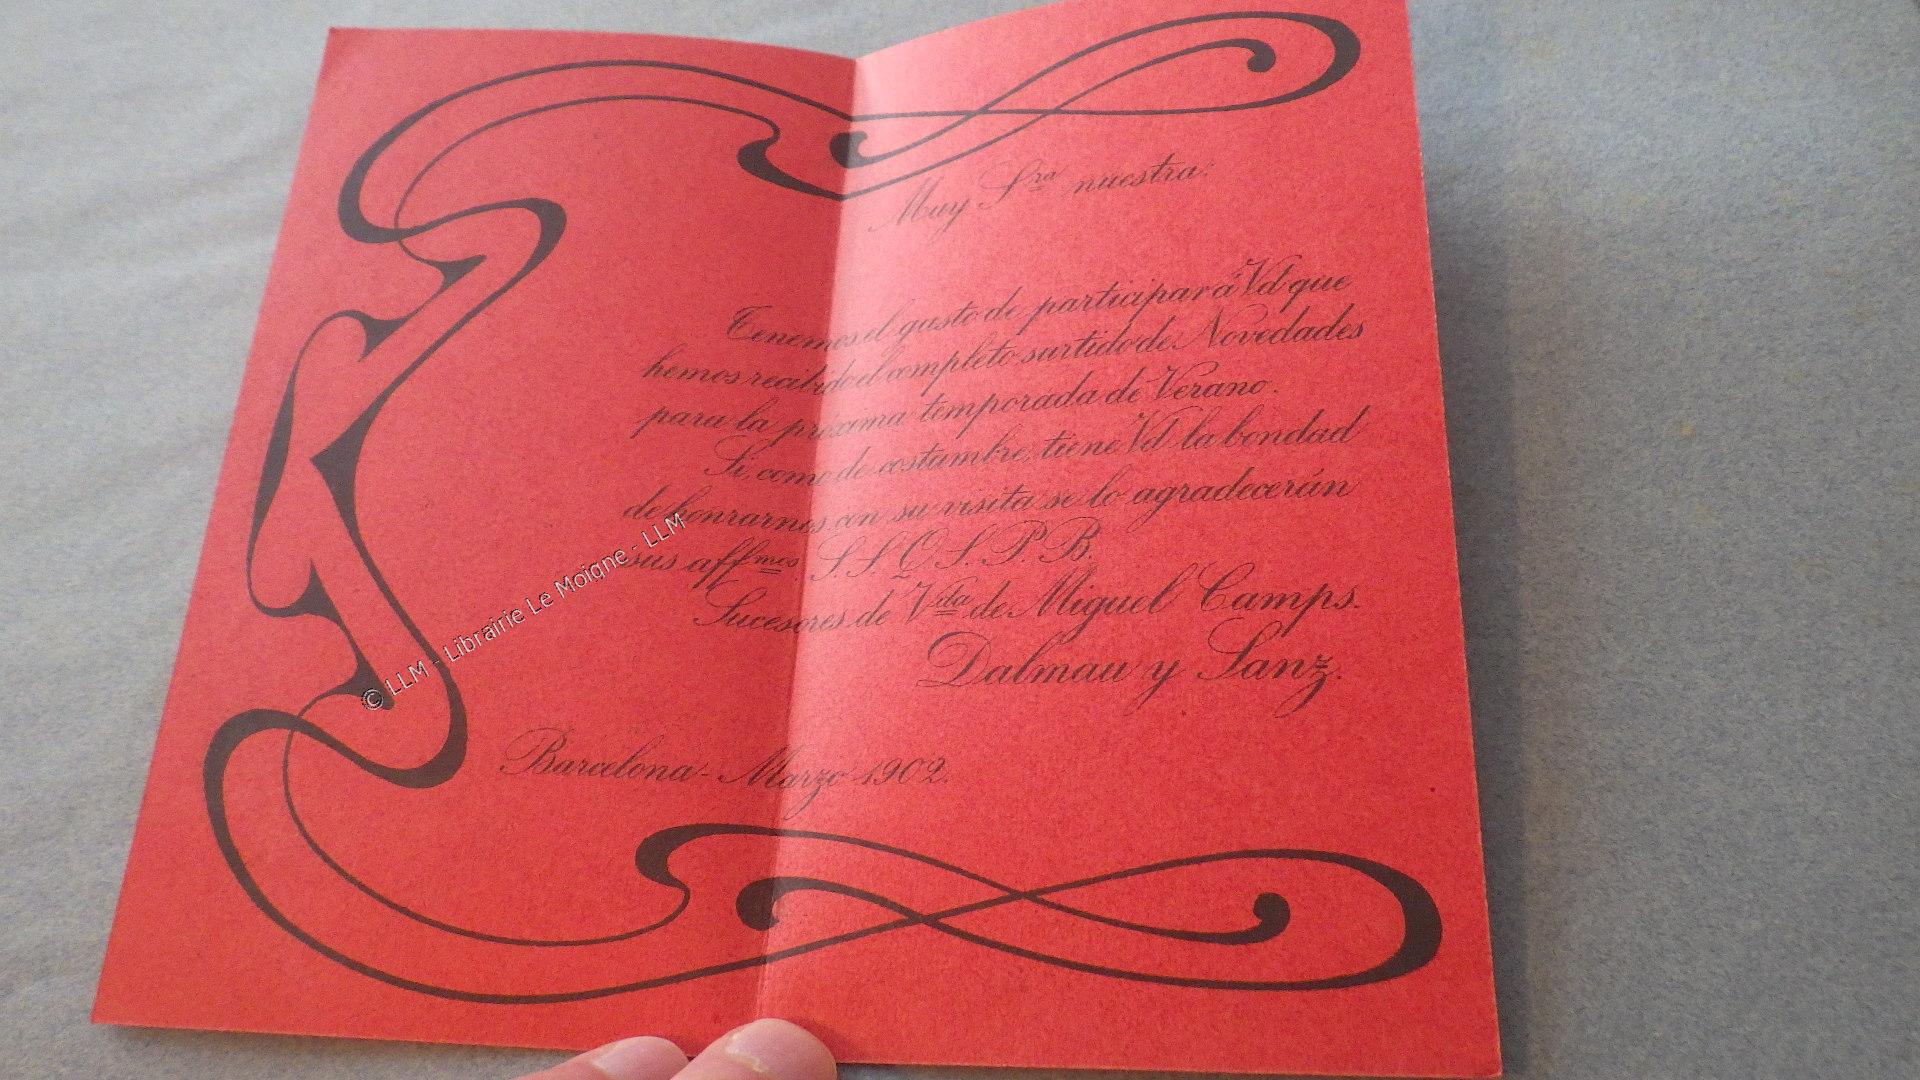 Muy Sra nuestra:
Tenemos el gusto de participar á Vd que
hemos recibido el completo surtido de Novedades
para la próxima temporada de Verano.
Si, como de costumbre, tiene Vd la bondad
de honrarnos con su visita se lo agradecerán
sus affmos. S. S. Q. S. P. B.
Sucesores de Vda de Miguel Camps.
Dalmau y Sanz.
Barcelona - Marzo 1902.
© LLM - Librairie Le Moigne - LLM